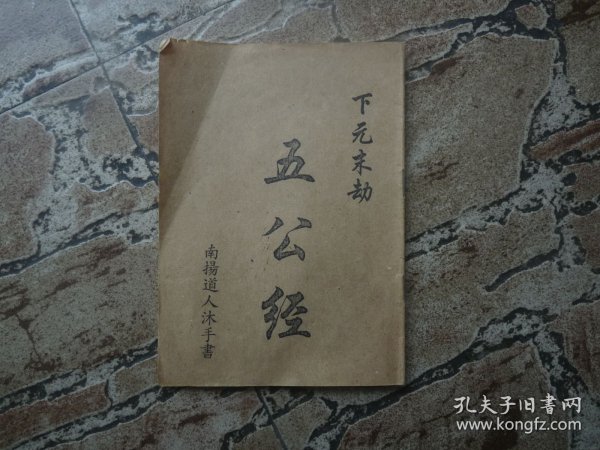 下元末劫
五公经
南揚道人沐手書
孔夫子旧書网
www.kongfz.com